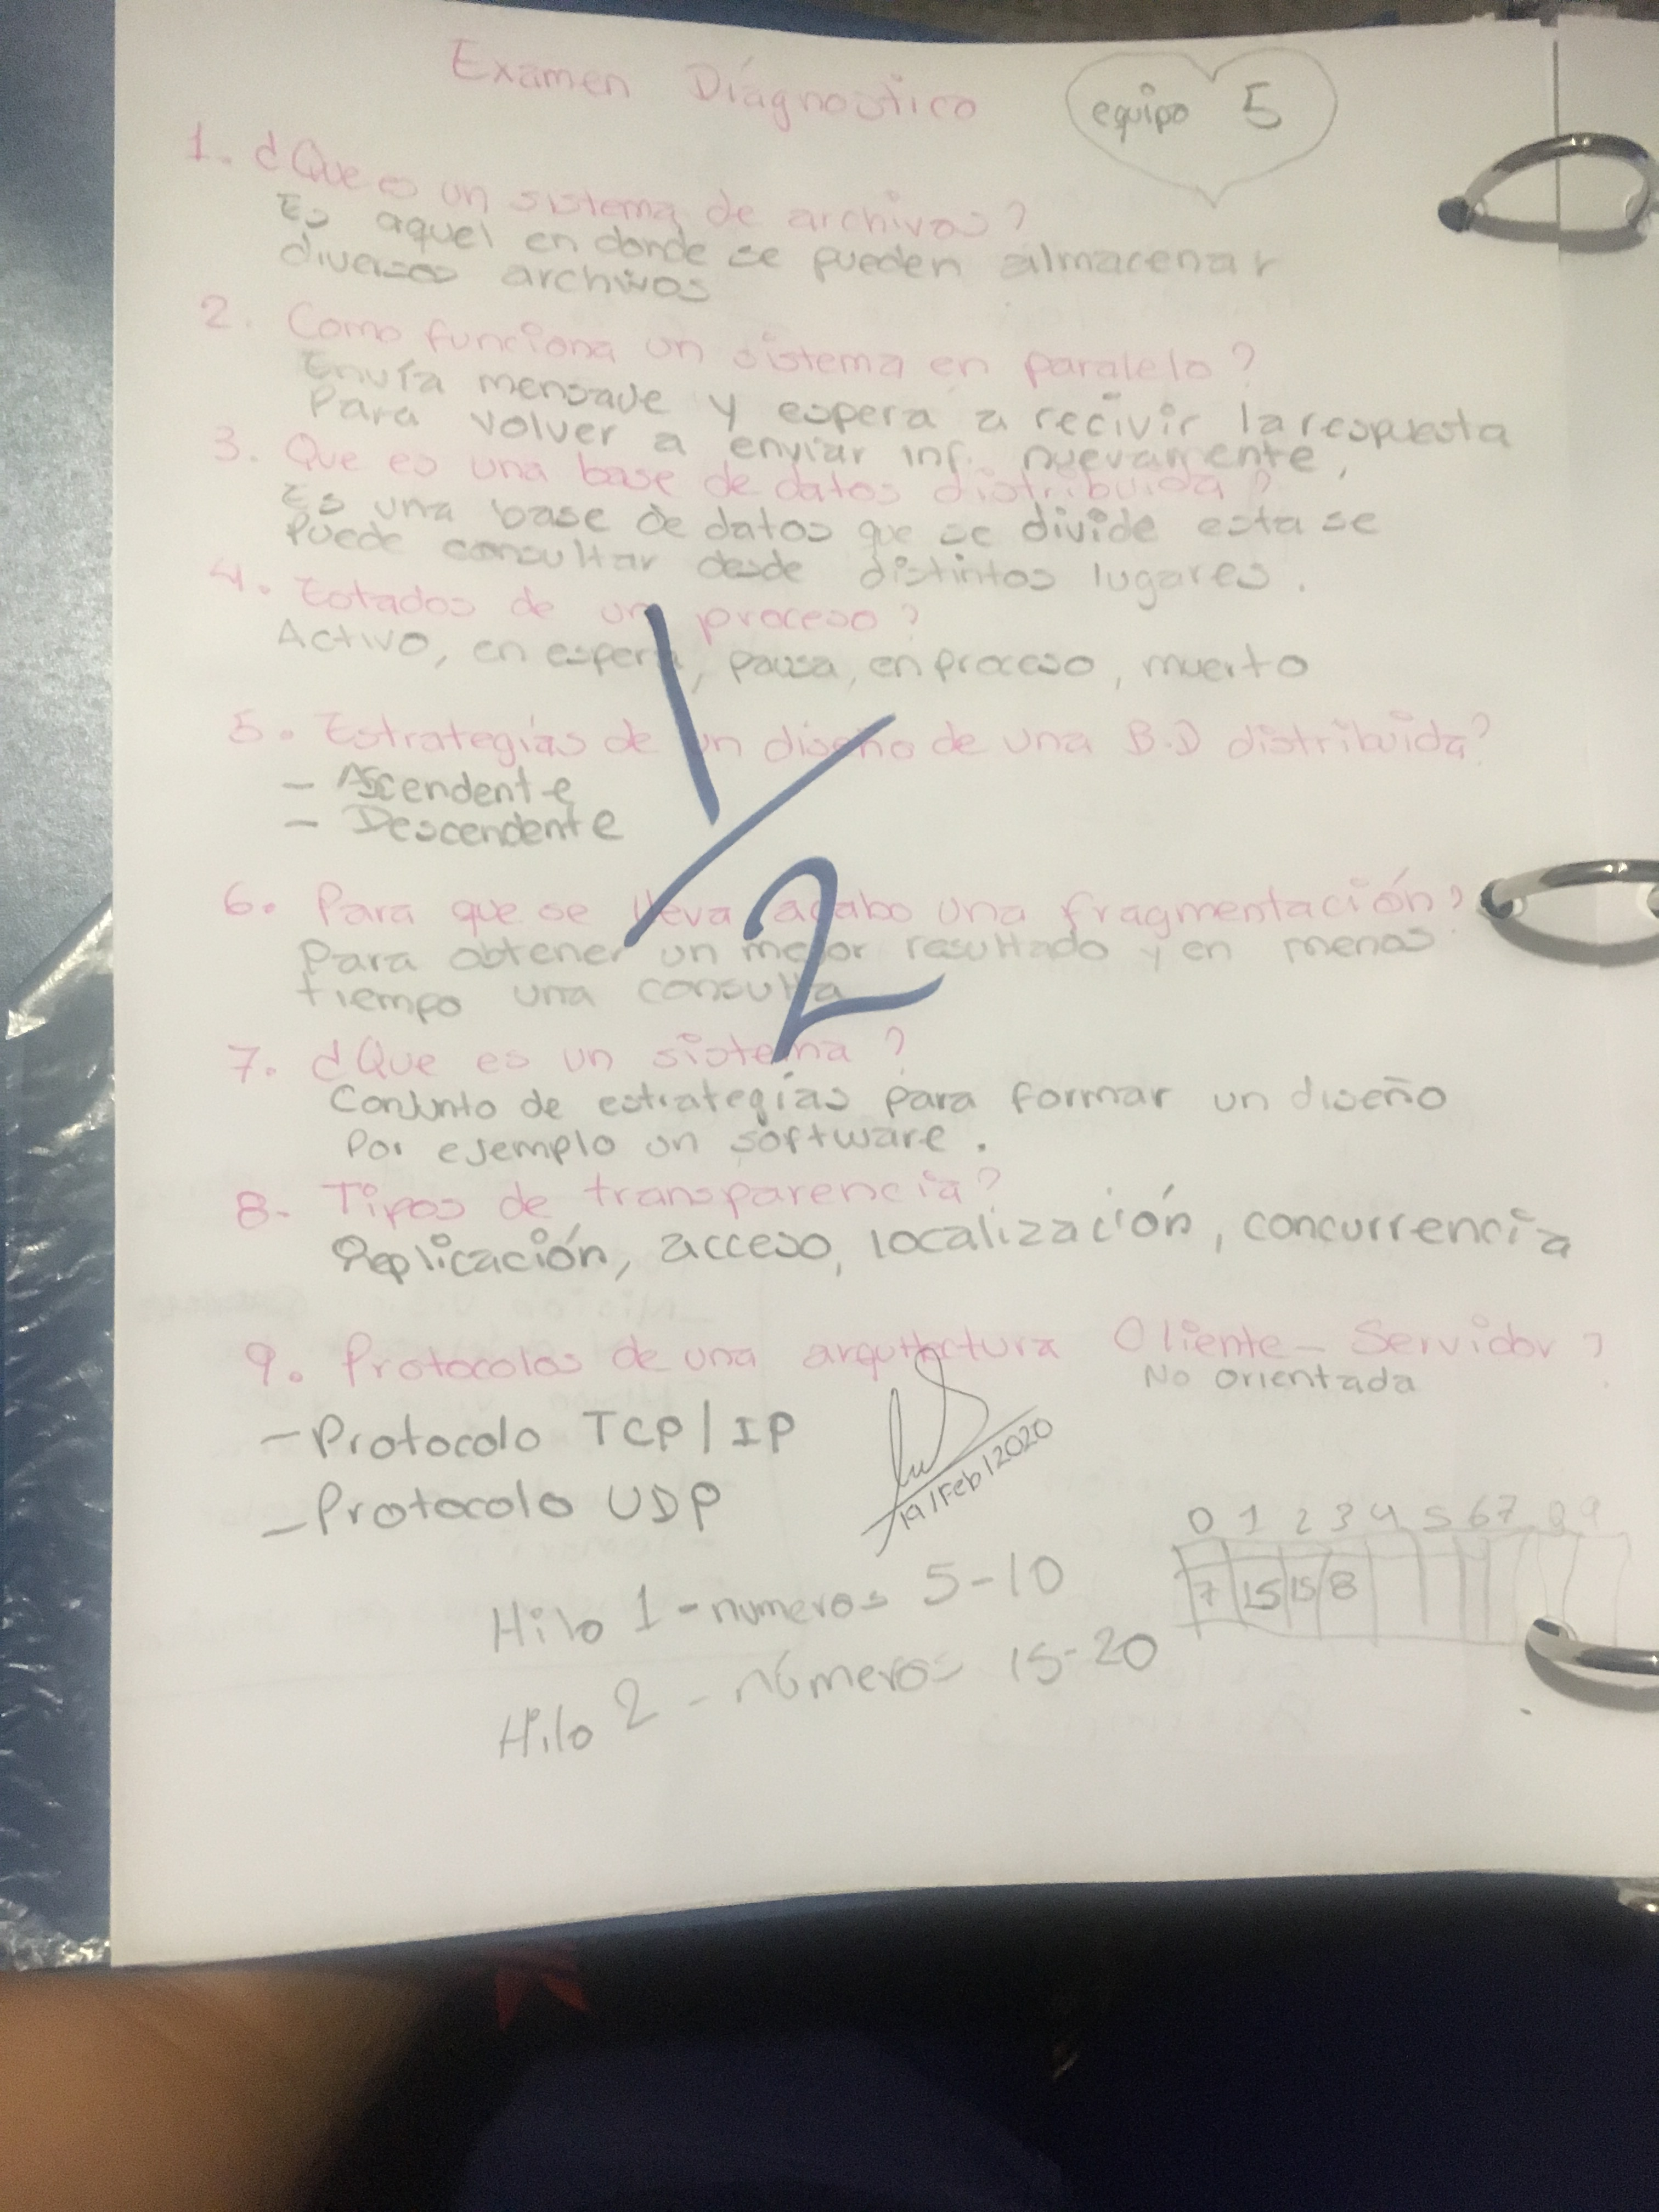 Examen Diagnostico
equipo 5
1. ¿Que es un sistema de archivos?
Es aquel en donde se pueden almacenar
diversos archivos
2. Como funciona un sistema en paralelo?
Envía mensaje y espera a recivir la respuesta
Para volver a enviar inf. nuevamente,
3. Que es una base de datos distribuida?
Es una base de datos que se divide esta se
Puede consultar desde distintos lugares.
4. Estados de un proceso?
Activo, en espera, pausa, en proceso, muerto
5. Estrategias de un diseño de una B.D distribuida?
- Ascendente
- Descendente
6. Para que se lleva acabo una fragmentación?
Para obtener un mejor resultado y en menos
tiempo una consulta
1/2
7. ¿Que es un sistema?
Conjunto de estrategias para formar un diseño
Por ejemplo un software.
8- Tipos de transparencia?
Replicación, acceso, localización, concurrencia
9. Protocolos de una arquitectura Cliente - Servidor?
No orientada
- Protocolo TCP/IP
- Protocolo UDP
19/Feb/2020
Hilo 1 - numeros 5-10
Hilo 2 - números 15-20
0 1 2 3 4 5 6 7 8 9
7 15 15 8